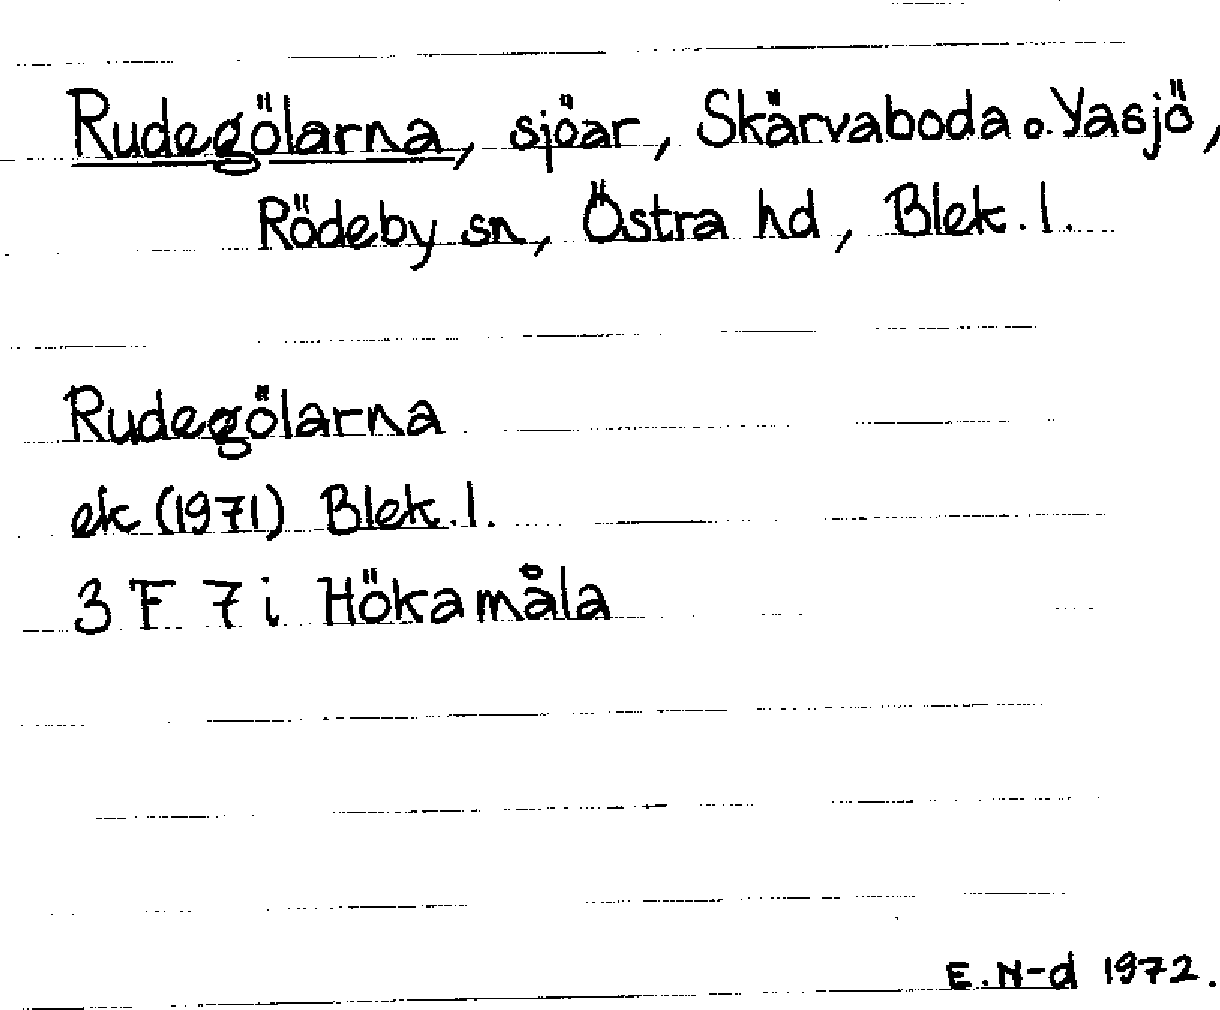 Rudegölarna, sjöar, Skärvaboda o. Yasjö,
Rödeby sn, Östra hd, Blek. l.
Rudegölarna
ek (1971) Blek. l.
3 F 7 i Hökamåla
E. N-d 1972.